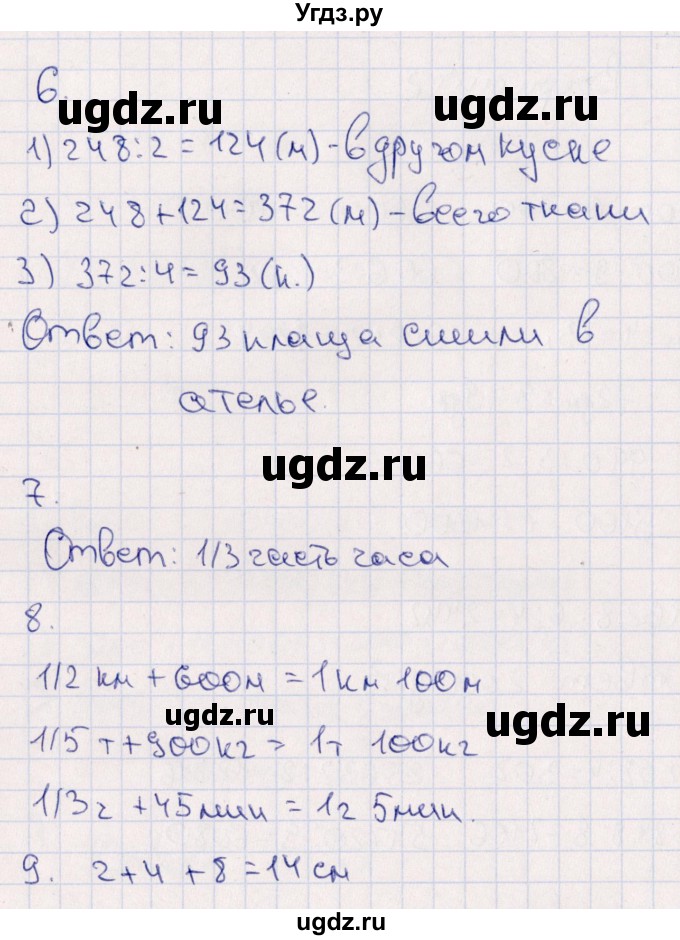 Угдз.ру
6.
ugdz.ru ugdz.ru
1) 248:2 = 124 (м) - в другом куске
2) 248 + 124 = 372 (м) - всего ткани
3) 372:4 = 93 (к.)
Ответ: 93 плаща сшили в
ателье.
ugdz.ru
7.
Ответ: 1/3 часть часа
8.
1/2 км + 600м = 1км 100м
ugdz.ru ugdz.ru
1/5 т + 900кг = 1т 100кг
1/3ч + 45мин = 1ч 5мин.
9. 2+4+8=14 см
ugdz.ru